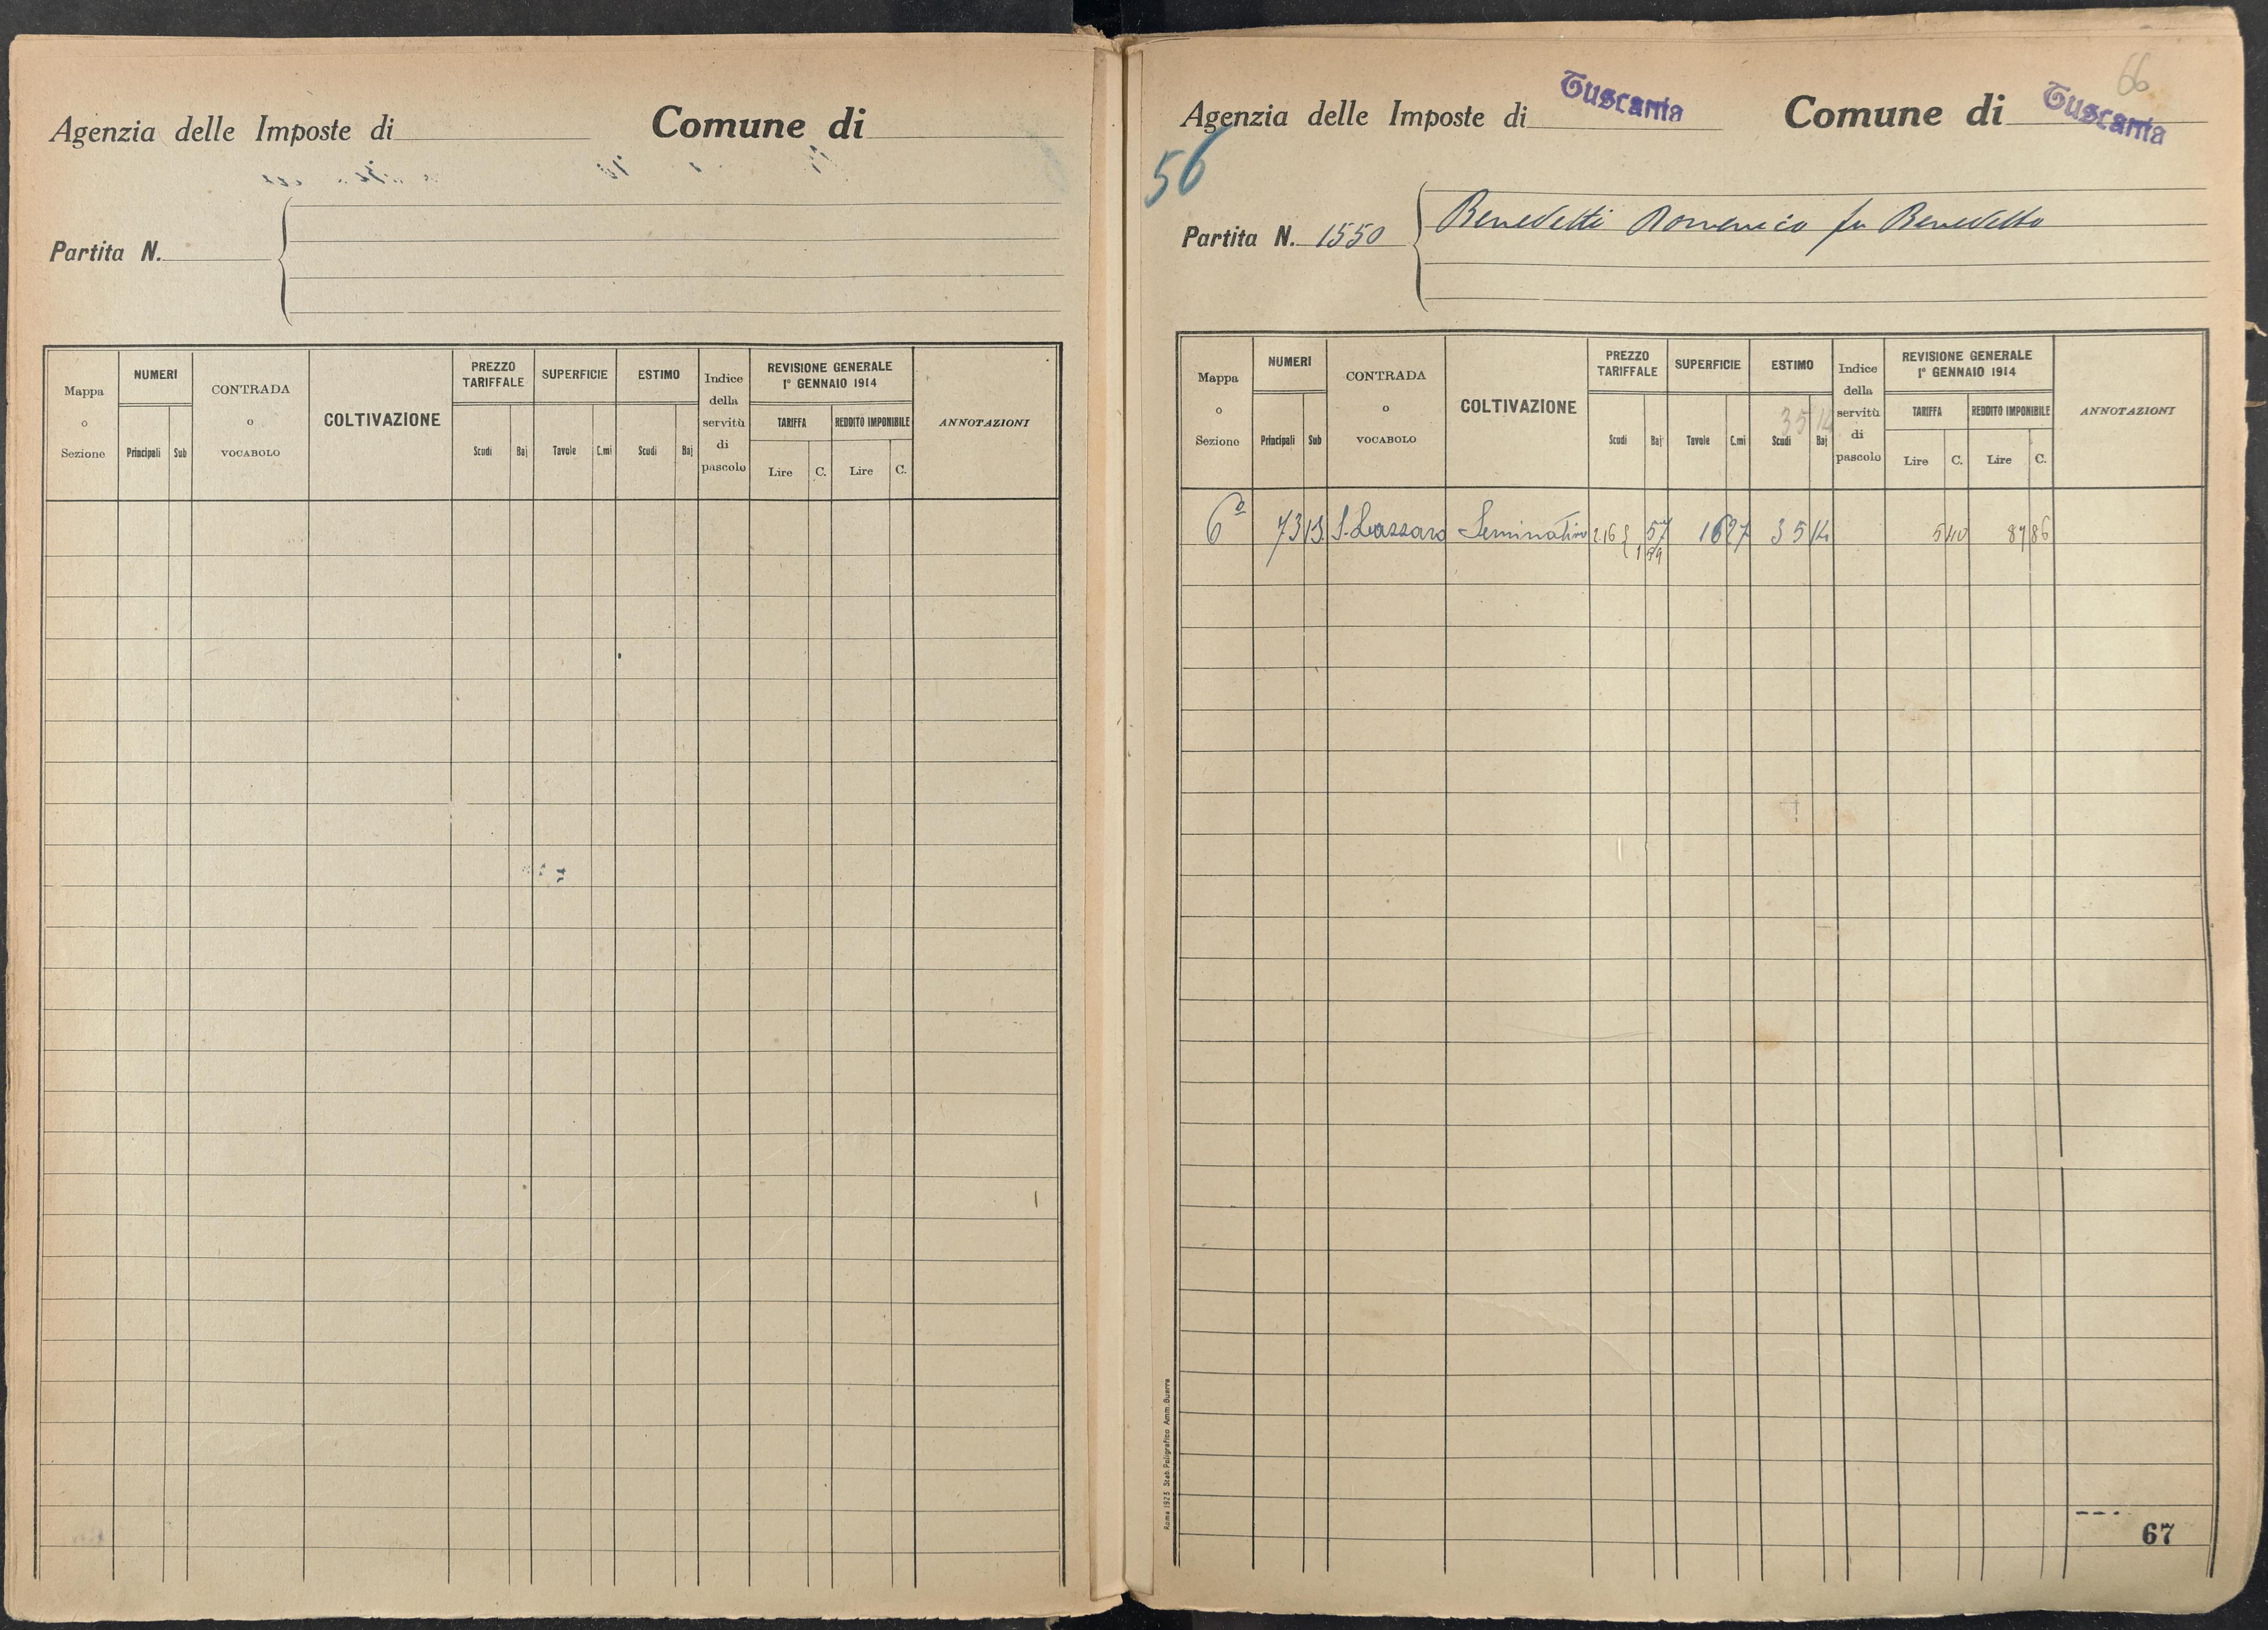 Agenzia delle Imposte di Comune di
Partita N.
Mappa o Sezione
NUMERI
Principali Sub
CONTRADA o VOCABOLO
COLTIVAZIONE
PREZZO TARIFFALE
Scudi Baj
SUPERFICIE
Tavole C.mi
ESTIMO
Scudi Baj
Indice della servitù di pascolo
REVISIONE GENERALE
1° GENNAIO 1914
TARIFFA REDDITO IMPONIBILE
Lire C. Lire C.
ANNOTAZIONI
66
Agenzia delle Imposte di Tuscania Comune di Tuscania
56
Partita N. 1550 Benedetti Domenico fu Benedetto
Mappa o Sezione
NUMERI
Principali Sub
CONTRADA o VOCABOLO
COLTIVAZIONE
PREZZO TARIFFALE
Scudi Baj
SUPERFICIE
Tavole C.mi
ESTIMO
35 14
Scudi Baj
Indice della servitù di pascolo
REVISIONE GENERALE
1° GENNAIO 1914
TARIFFA REDDITO IMPONIBILE
Lire C. Lire C.
ANNOTAZIONI
6a 73 S. Lazzaro Seminativo 2.16 57 16 27 35 14 5 40 87 86
1 59
Roma 1923 Stab. Poligrafico Amm. Guerra
67